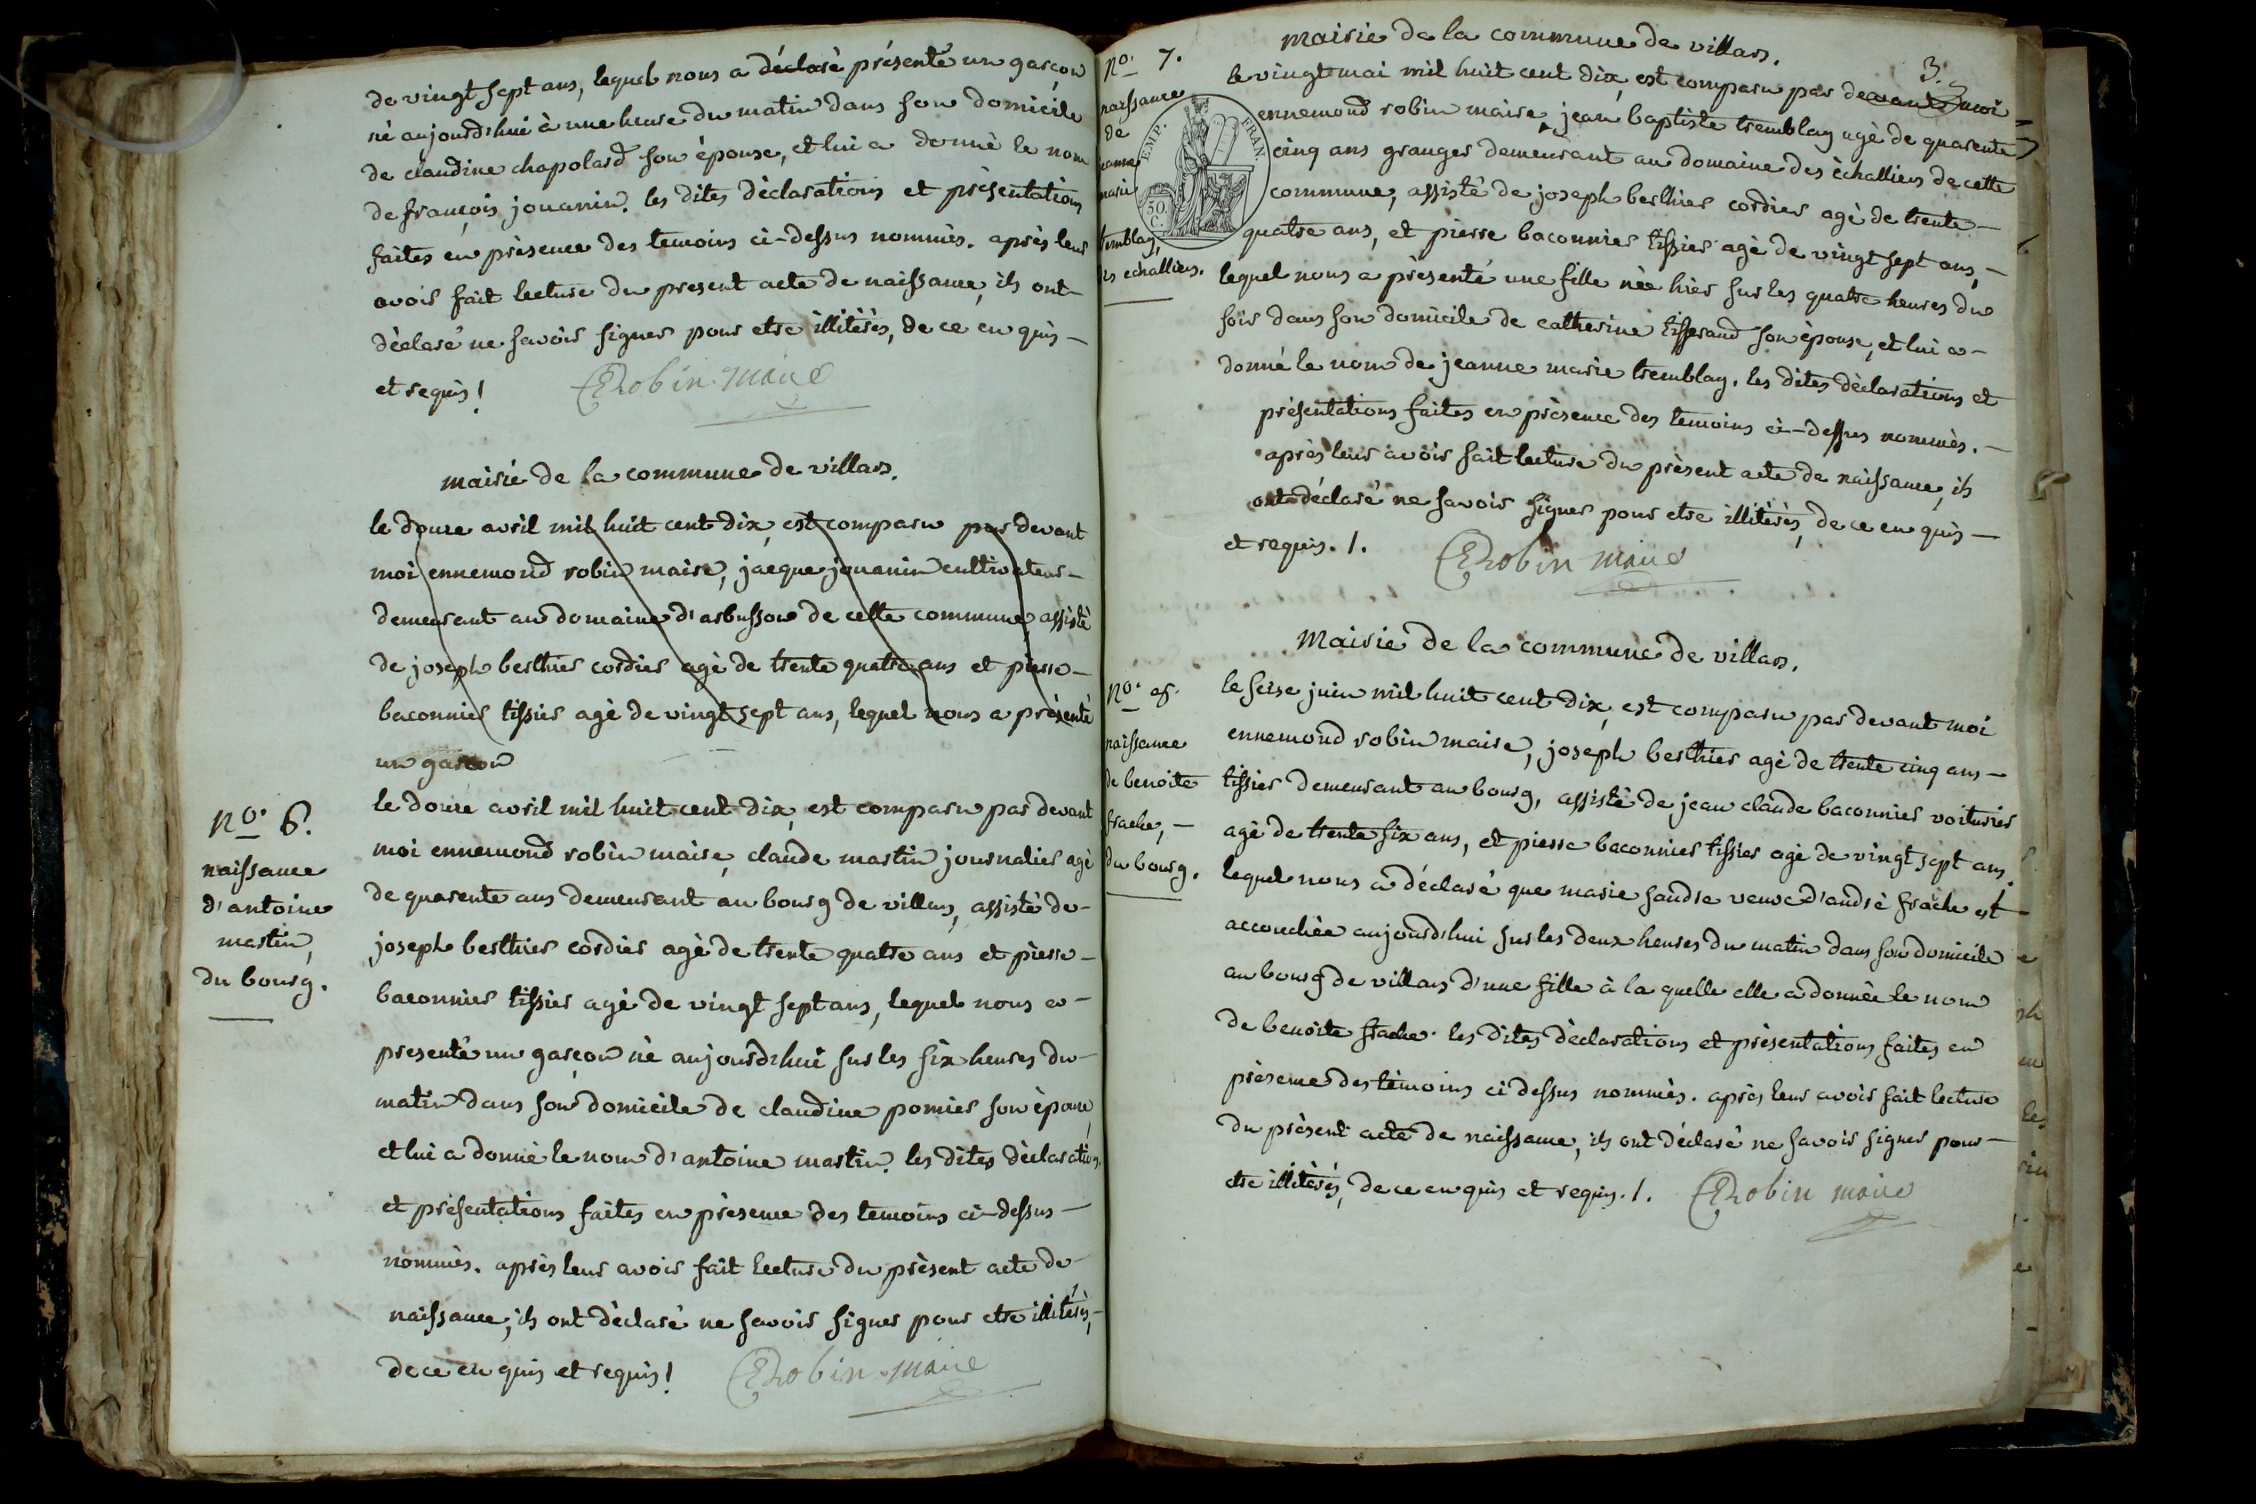 de vingt sept ans, lequel nous a déclaré présenté un garçon
né aujourd'hui à une heure du matin dans son domicile
de claudine chapolard son épouse, et lui a donné le nom
de françois jouanin. les dites déclarations et présentations
faites en présence des temoins ci-dessus nommés. après leur
avoir fait lecture du present acte de naissance, ils ont
déclaré ne savoir signer pour etre illitérés, de ce en quis
et requis!
ERobin maire
mairie de la commune de villars.
le douze avril mil huit cent dix, est comparu par devant
moi ennemond robin maire, jacque jouanin cultivateur
demeurant au domaine d'arbusson de cette commune, assisté
de joseph berthier cordier agé de trente quatre ans et pierre
baconnier tissier agé de vingt sept ans, lequel nous a présenté
un garçon
no. 6.
naissance
d'antoine
martin,
du bourg.
le douze avril mil huit cent dix, est comparu par devant
moi ennemond robin maire, claude martin journalier agé
de quarente ans demeurant au bourg de villars, assisté de
joseph berthier cordier agé de trente quatre ans et pierre
baconnier tissier agé de vingt sept ans, lequel nous a
presenté un garçon né aujourd'hui sur les six heures du
matin dans son domicile de claudine pomier son épouse,
et lui a donné le nom d'antoine martin. les dites déclarations
et présentations faites en présence des temoins ci-dessus
nommés. après leur avoir fait lecture du présent acte de
naissance, ils ont déclaré ne savoir signer pour etre illitérés,
de ce en quis et requis!
ERobin maire
mairie de la commune de villars.
3.
no. 7.
naissance
de
jeanne
marie
tremblay,
des echalliers.
EMP. FRAN.
50. C.
le vingt mai mil huit cent dix, est comparu par devant moi
ennemond robin maire, jean baptiste tremblay agé de quarente
cinq ans granger demeurant au domaine des échalliers de cette
commune, assisté de joseph berthier cordier agé de trente
quatre ans, et pierre baconnier tissier agé de vingt sept ans,
lequel nous a présenté une fille née hier sur les quatre heures du
soir dans son domicile de catherine tisserand son épouse, et lui a
donné le nom de jeanne marie tremblay. les dites déclarations et
présentations faites en présence des temoins ci-dessus nommés.
après leur avoir fait lecture du présent acte de naissance, ils
ont déclaré ne savoir signer pour etre illitérés, de ce en quis
et requis. /.
ERobin maire
Mairie de la commune de villars.
no. 8.
naissance
de benoite
frache,
du bourg.
le seise juin mil huit cent dix, est comparu par devant moi
ennemond robin maire, joseph berthier agé de trente cinq ans
tissier demeurant au bourg, assisté de jean claude baconnier voiturier
agé de trente six ans, et pierre baconnier tissier agé de vingt sept ans.
lequel nous a déclaré que marie sandre veuve d'andré frache est
accouchée aujourd'hui sur les deux heures du matin dans son domicile
au bourg de villars d'une fille à la quelle elle a donnée le nom
de benoite frache. les dites déclarations et présentations faites en
présence des témoins ci dessus nommés. après leur avoir fait lecture
du présent acte de naissance, ils ont déclaré ne savoir signer pour
etre illitérés, de ce en quis et requis. /.
ERobin maire